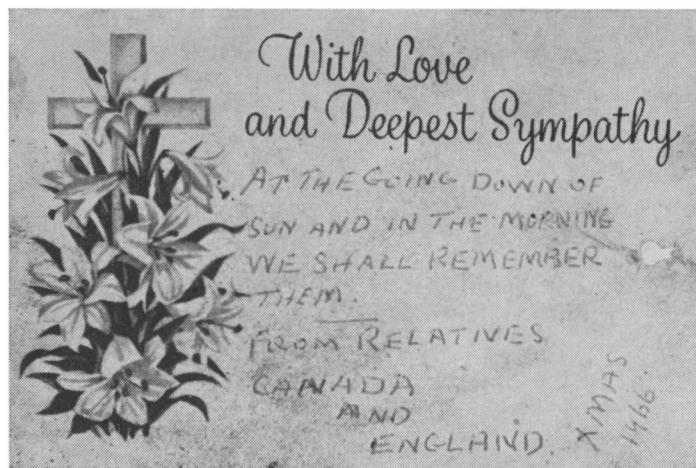 With Love
and Deepest Sympathy
AT THE GOING DOWN OF
SUN AND IN THE MORNING
WE SHALL REMEMBER
THEM.
FROM RELATIVES
CANADA
AND
ENGLAND.
XMAS
1966.